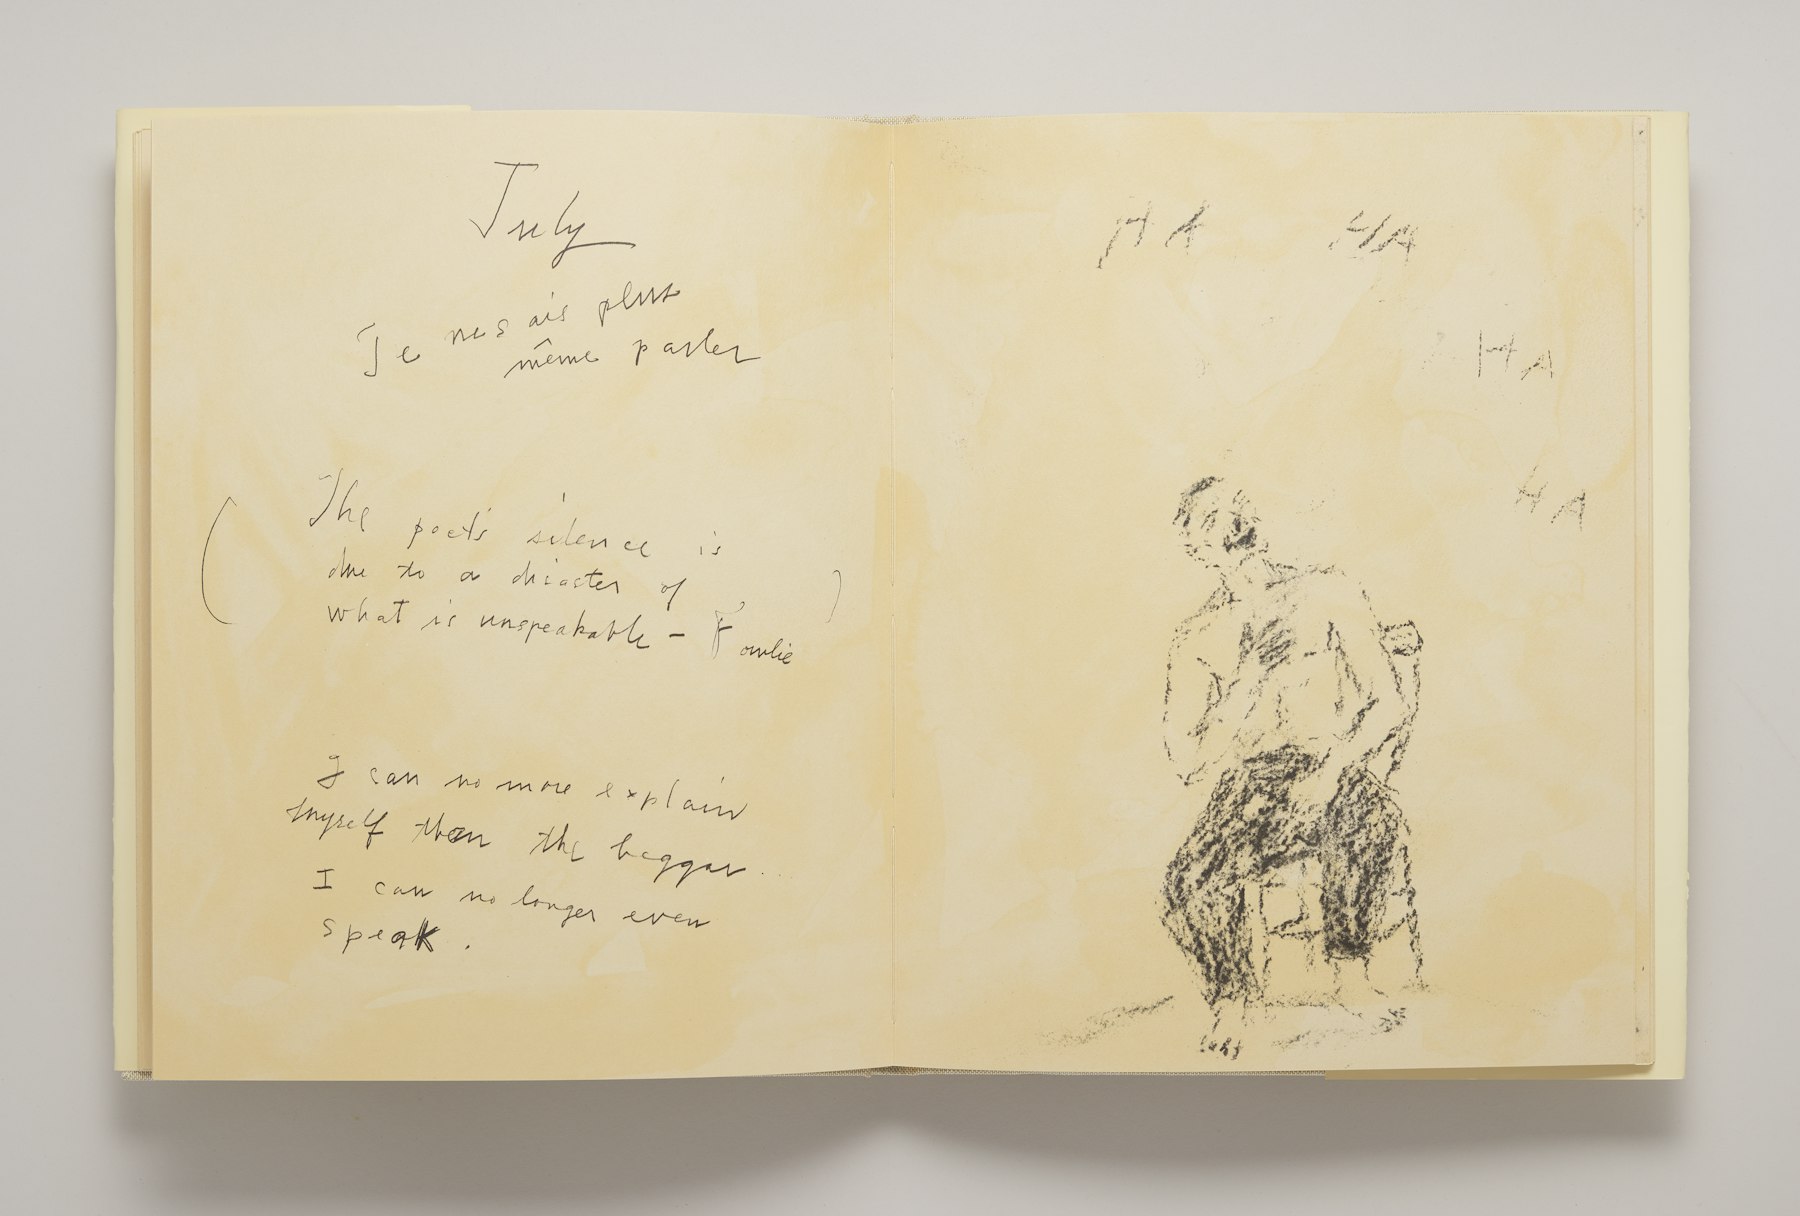 July
Je ne sais plus
même parler
(The poet's silence is
due to a disaster of
what is unspeakable - Fowlie)
I can no more explain
myself than the beggar.
I can no longer even
speak.
HA HA
HA
HA